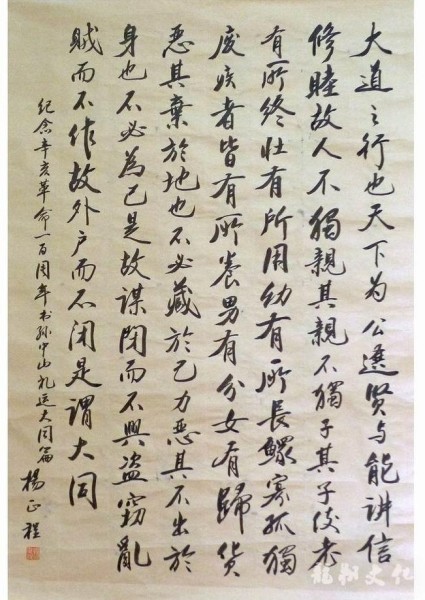 大道之行也天下为公選贤与能讲信
修睦故人不獨親其親不獨子其子使老
有所终壮有所用幼有所長鰥寡孤獨
废疾者皆有所养男有分女有歸货
恶其棄於地也不必藏於己力恶其不出於
身也不必為己是故谋闭而不興盗窃亂
贼而不作故外户而不闭是谓大同
纪念辛亥革命一百周年书孙中山礼运大同篇
楊正程
龍翔文化